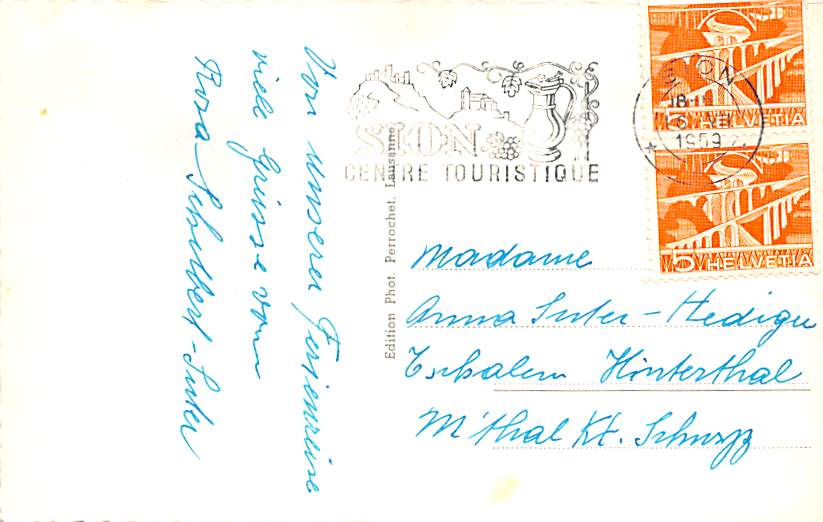 Von unserer Ferienreise
viele Grüsse von
Rosa Schelbert-Suter
SION
CENTRE TOURISTIQUE
SION
18
1959
HELVETIA
5 HELVETIA
Edition Phot. Perrochet. Lausanne
Madame
Anna Suter-Hediger
Hinterthal
M'thal Kt. Schwyz